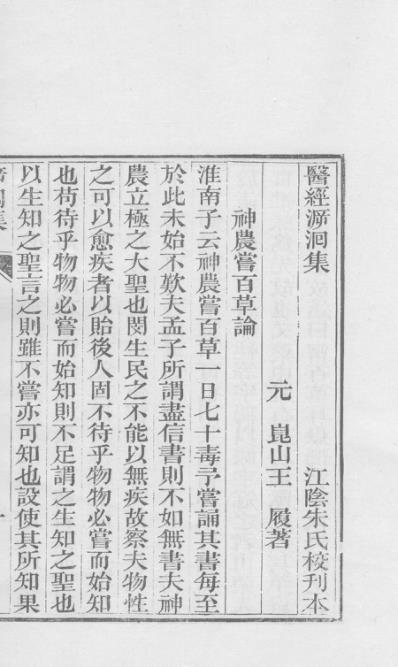 醫經溯洄集 江陰朱氏校刊本
元 崑山王 履著
神農嘗百草論
淮南子云神農嘗百草一日七十毒予嘗誦其書每至
於此未始不歎夫孟子所謂盡信書則不如無書夫神
農立極之大聖也閔生民之不能以無疾故察夫物性
之可以愈疾者以貽後人固不待乎物物必嘗而始知
也苟待乎物物必嘗而始知則不足謂之生知之聖也
以生知之聖言之則雖不嘗亦可知也設使其所知果